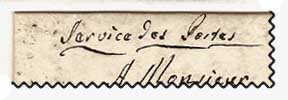 Service des Postes
A Monsieur